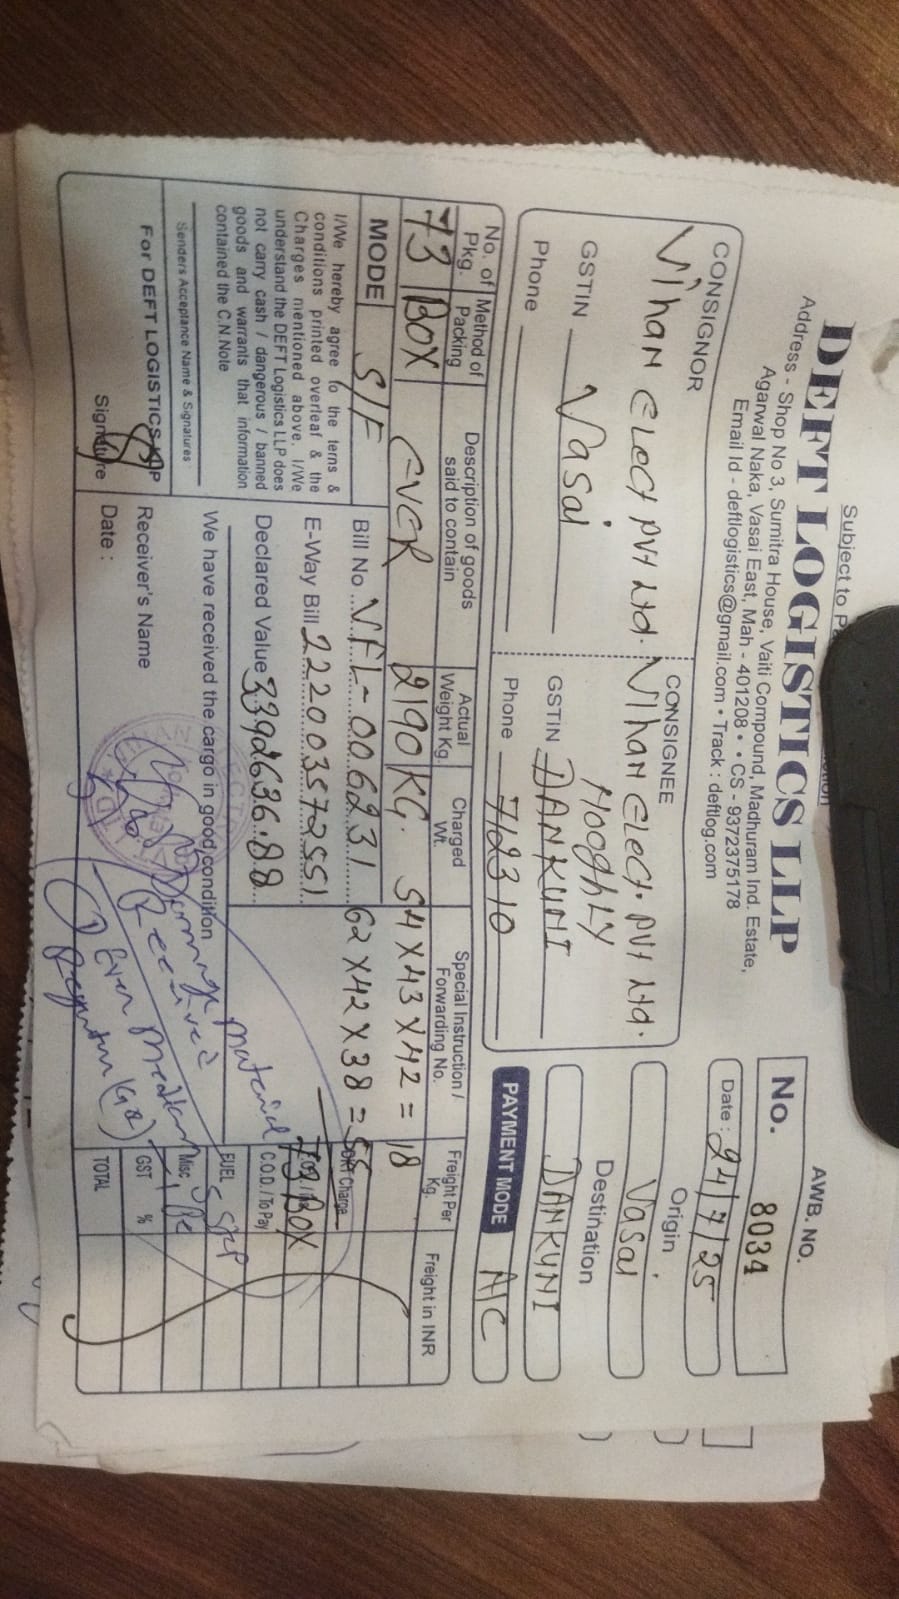 Subject to
DEFT LOGISTICS LLP
Address - Shop No 3, Sumitra House, Vaiti Compound, Madhuram Ind. Estate,
Agarwal Naka, Vasai East, Mah - 401208 • • CS - 9372375178
Email Id - deftlogistics@gmail.com • Track : deftlog.com
AWB. NO.
No. 8034
Date : 24/7/25
CONSIGNOR
Vihan Elect Pvt Ltd.
GSTIN Vasai
Phone
CONSIGNEE
Vihan Elect. Pvt Ltd.
Hooghly
GSTIN DANKUNI
Phone 712310
Origin
Vasai
Destination
DANKUNI
PAYMENT MODE A/C
No. of Pkg. Method of Packing Description of goods said to contain Actual Weight Kg. Charged Wt. Special Instruction / Forwarding No. Freight Per Kg. Freight in INR
73 BOX 2190 KG. 54 X 43 X 42 = 18
62 X 42 X 38 = 55
73 BOX
MODE S/F
Bill No. VFL-006231
E-Way Bill 222003572551
Declared Value 3392636.88
I/We hereby agree to the terns &
conditions printed overleaf & the
Charges mentioned above. I/We
understand the DEFT Logistics LLP does
not carry cash / dangerous / banned
goods and warrants that information
contained the C.N.Note
Senders Acceptance Name & Signatures :
For DEFT LOGISTICS LLP
Signature
We have received the cargo in good condition
Receiver's Name
Date :
material
Received
Charge
C.O.D / To Pay
FUEL
Misc.
GST %
TOTAL